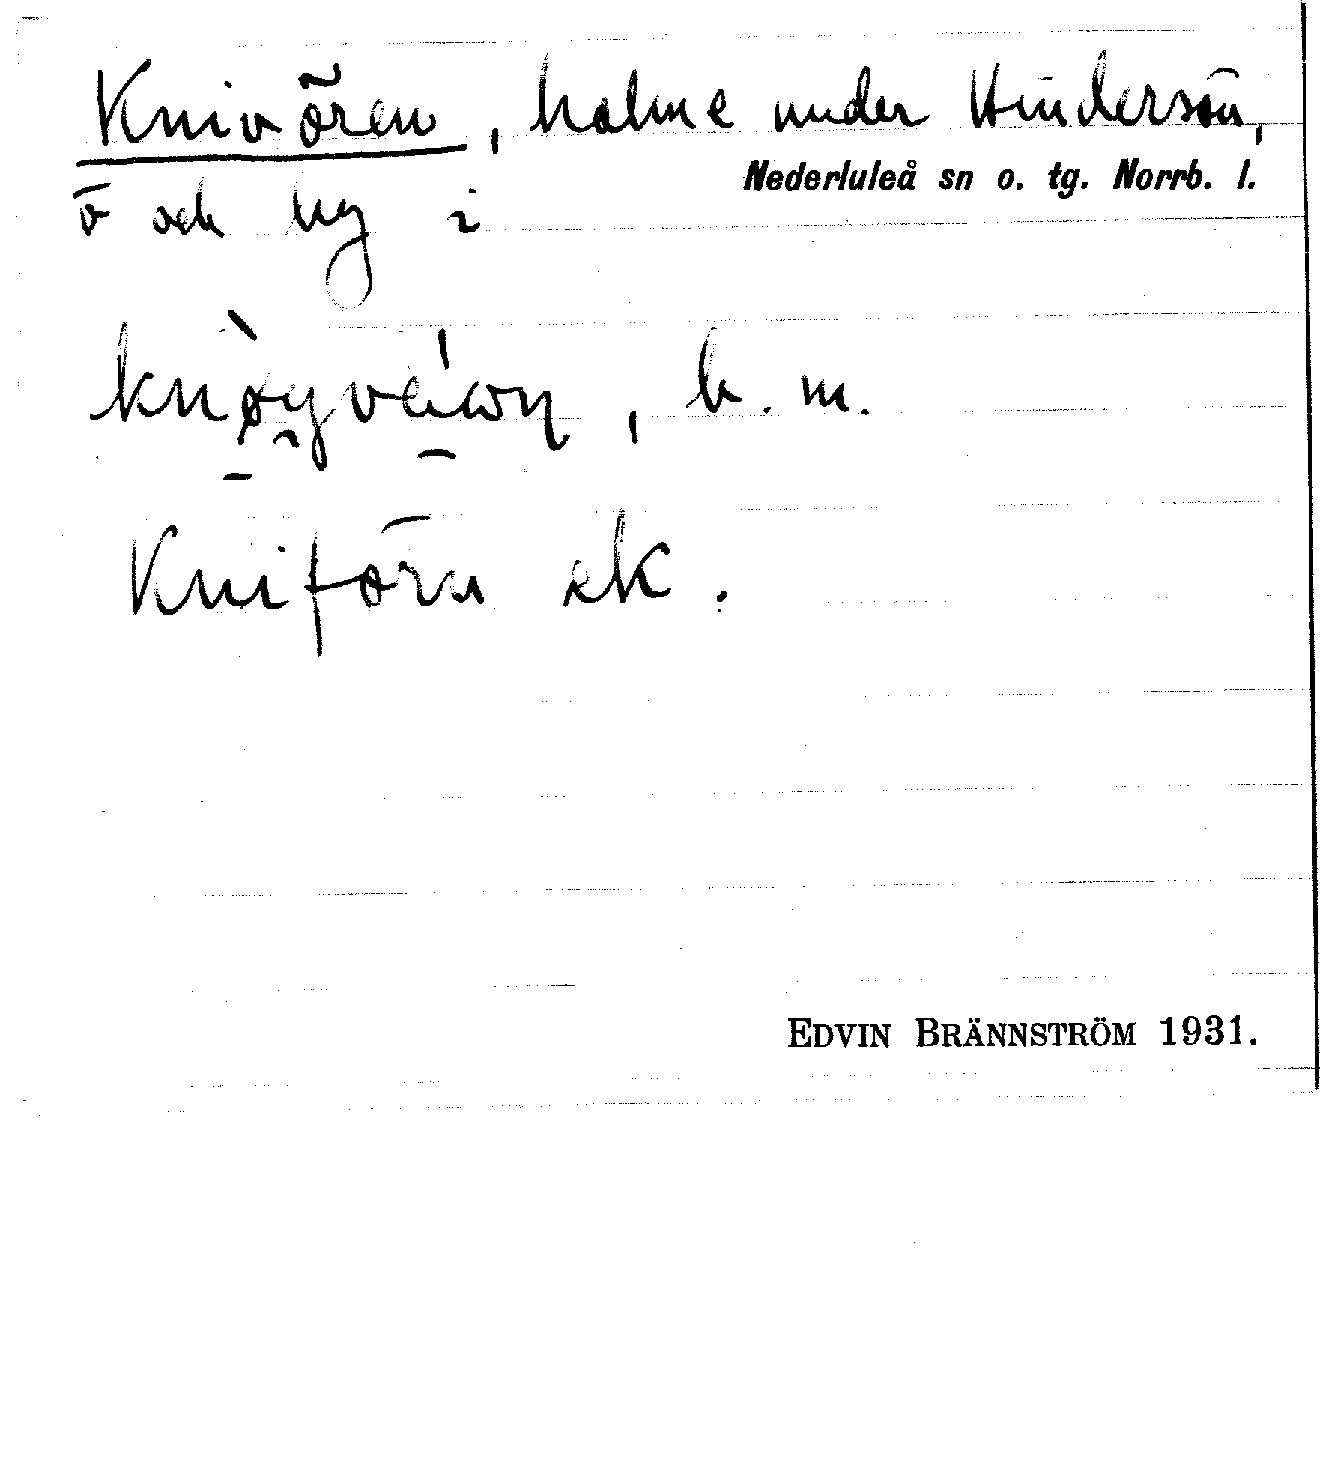 Knivören, holme under Hindersön,
Nederluleå sn o. tg. Norrb. l.
ö och by i
b. m.
Kniförn ek.
EDVIN BRÄNNSTRÖM 1931.